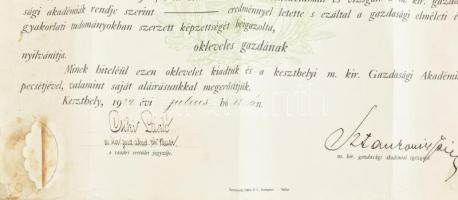 sági akadémiák rendje szerint eredménnyel letette s ezáltal a gazdasági elméleti és
gyakorlati tudományokban szerzett képzettségét beigazolta,
okleveles gazdának
nyilvánítja.
Minek hiteléül ezen oklevelet kiadtuk és a keszthelyi m. kir. Gazdasági Akadémia
pecsétjével, valamint saját aláírásunkkal megerősítjük.
Keszthely, 1929 évi július hó
m. kir. gazd. akad.
a tanári testület jegyzője.
m. kir. gazdasági akadémiai igazgató.